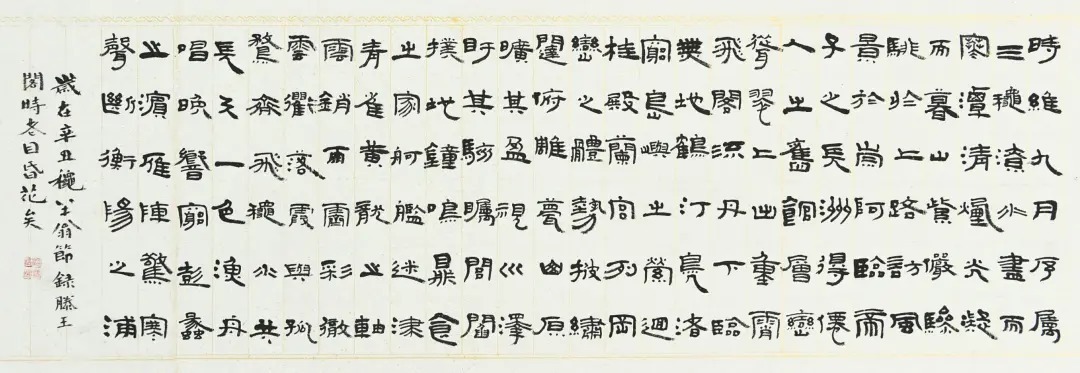 時維九月序屬
三穐潦水盡而
寒潭清煙光凝
而暮山紫儼驂
騑於上路訪風
景於崇阿臨帝
子之長洲得僊
人之舊館層巒
聳翠上出重霄
飛閣流丹下臨
無地鶴汀鳧渚
窮島嶼之縈迴
桂殿蘭宮列岡
巒之體勢披繡
闥俯雕甍山原
曠其盈視川澤
盱其駭矚閭閻
撲地鐘鳴鼎食
之家舸艦迷津
青雀黃龍之軸
雲銷雨霽彩徹
雲衢落霞與孤
鶩齊飛穐水共
長天一色漁舟
唱晚響窮彭蠡
之濱雁陣驚寒
聲斷衡陽之浦
歲在辛丑穐八十翁節錄滕王
閣時老目昏花矣